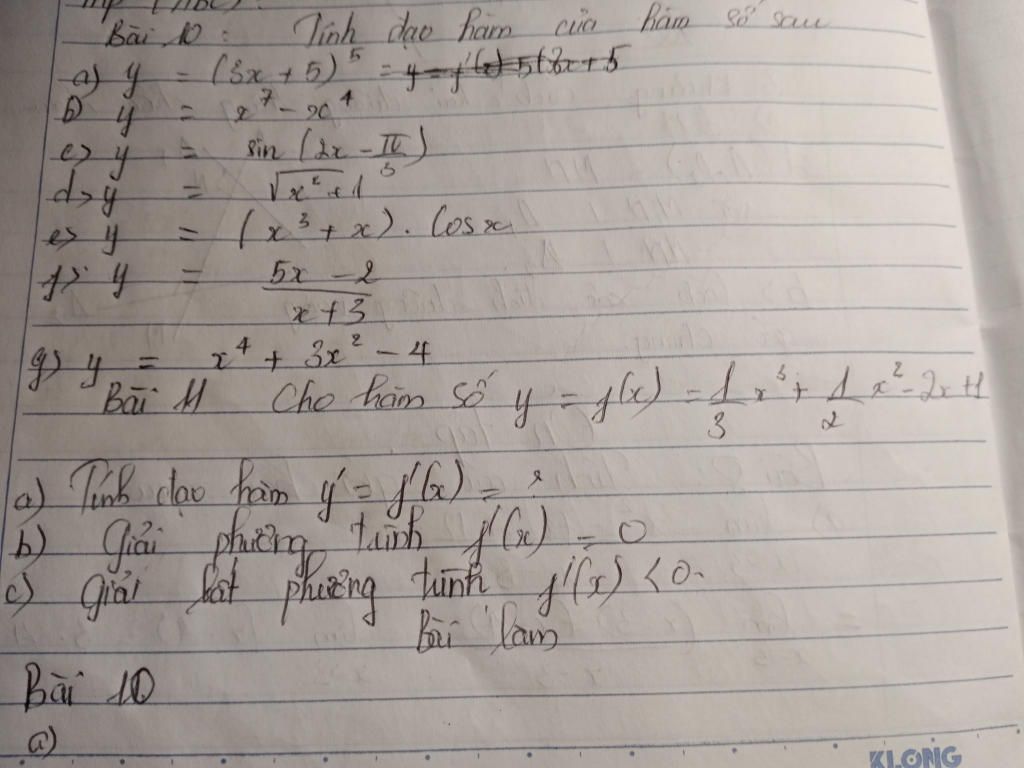 mp (ABC).
Bài 10: Tính đạo hàm của hàm số sau
a) y = (3x + 5)^5 = y = f'(x) 5(3x + 5
b) y = x^7 - x^4
c) y = sin (2x - π/3)
d) y = √(x^2 + 1)
e) y = (x^3 + x). Cos x
f) y = (5x - 2)/(x + 3)
g) y = x^4 + 3x^2 - 4
Bài 11 Cho hàm số y = f(x) = 1/3 x^3 + 1/2 x^2 - 2x + 1
a) Tính đạo hàm y' = f'(x) = ?
b) Giải phương trình f'(x) = 0
c) Giải bất phương trình f'(x) < 0.
Bài làm
Bài 10
a)
KLONG